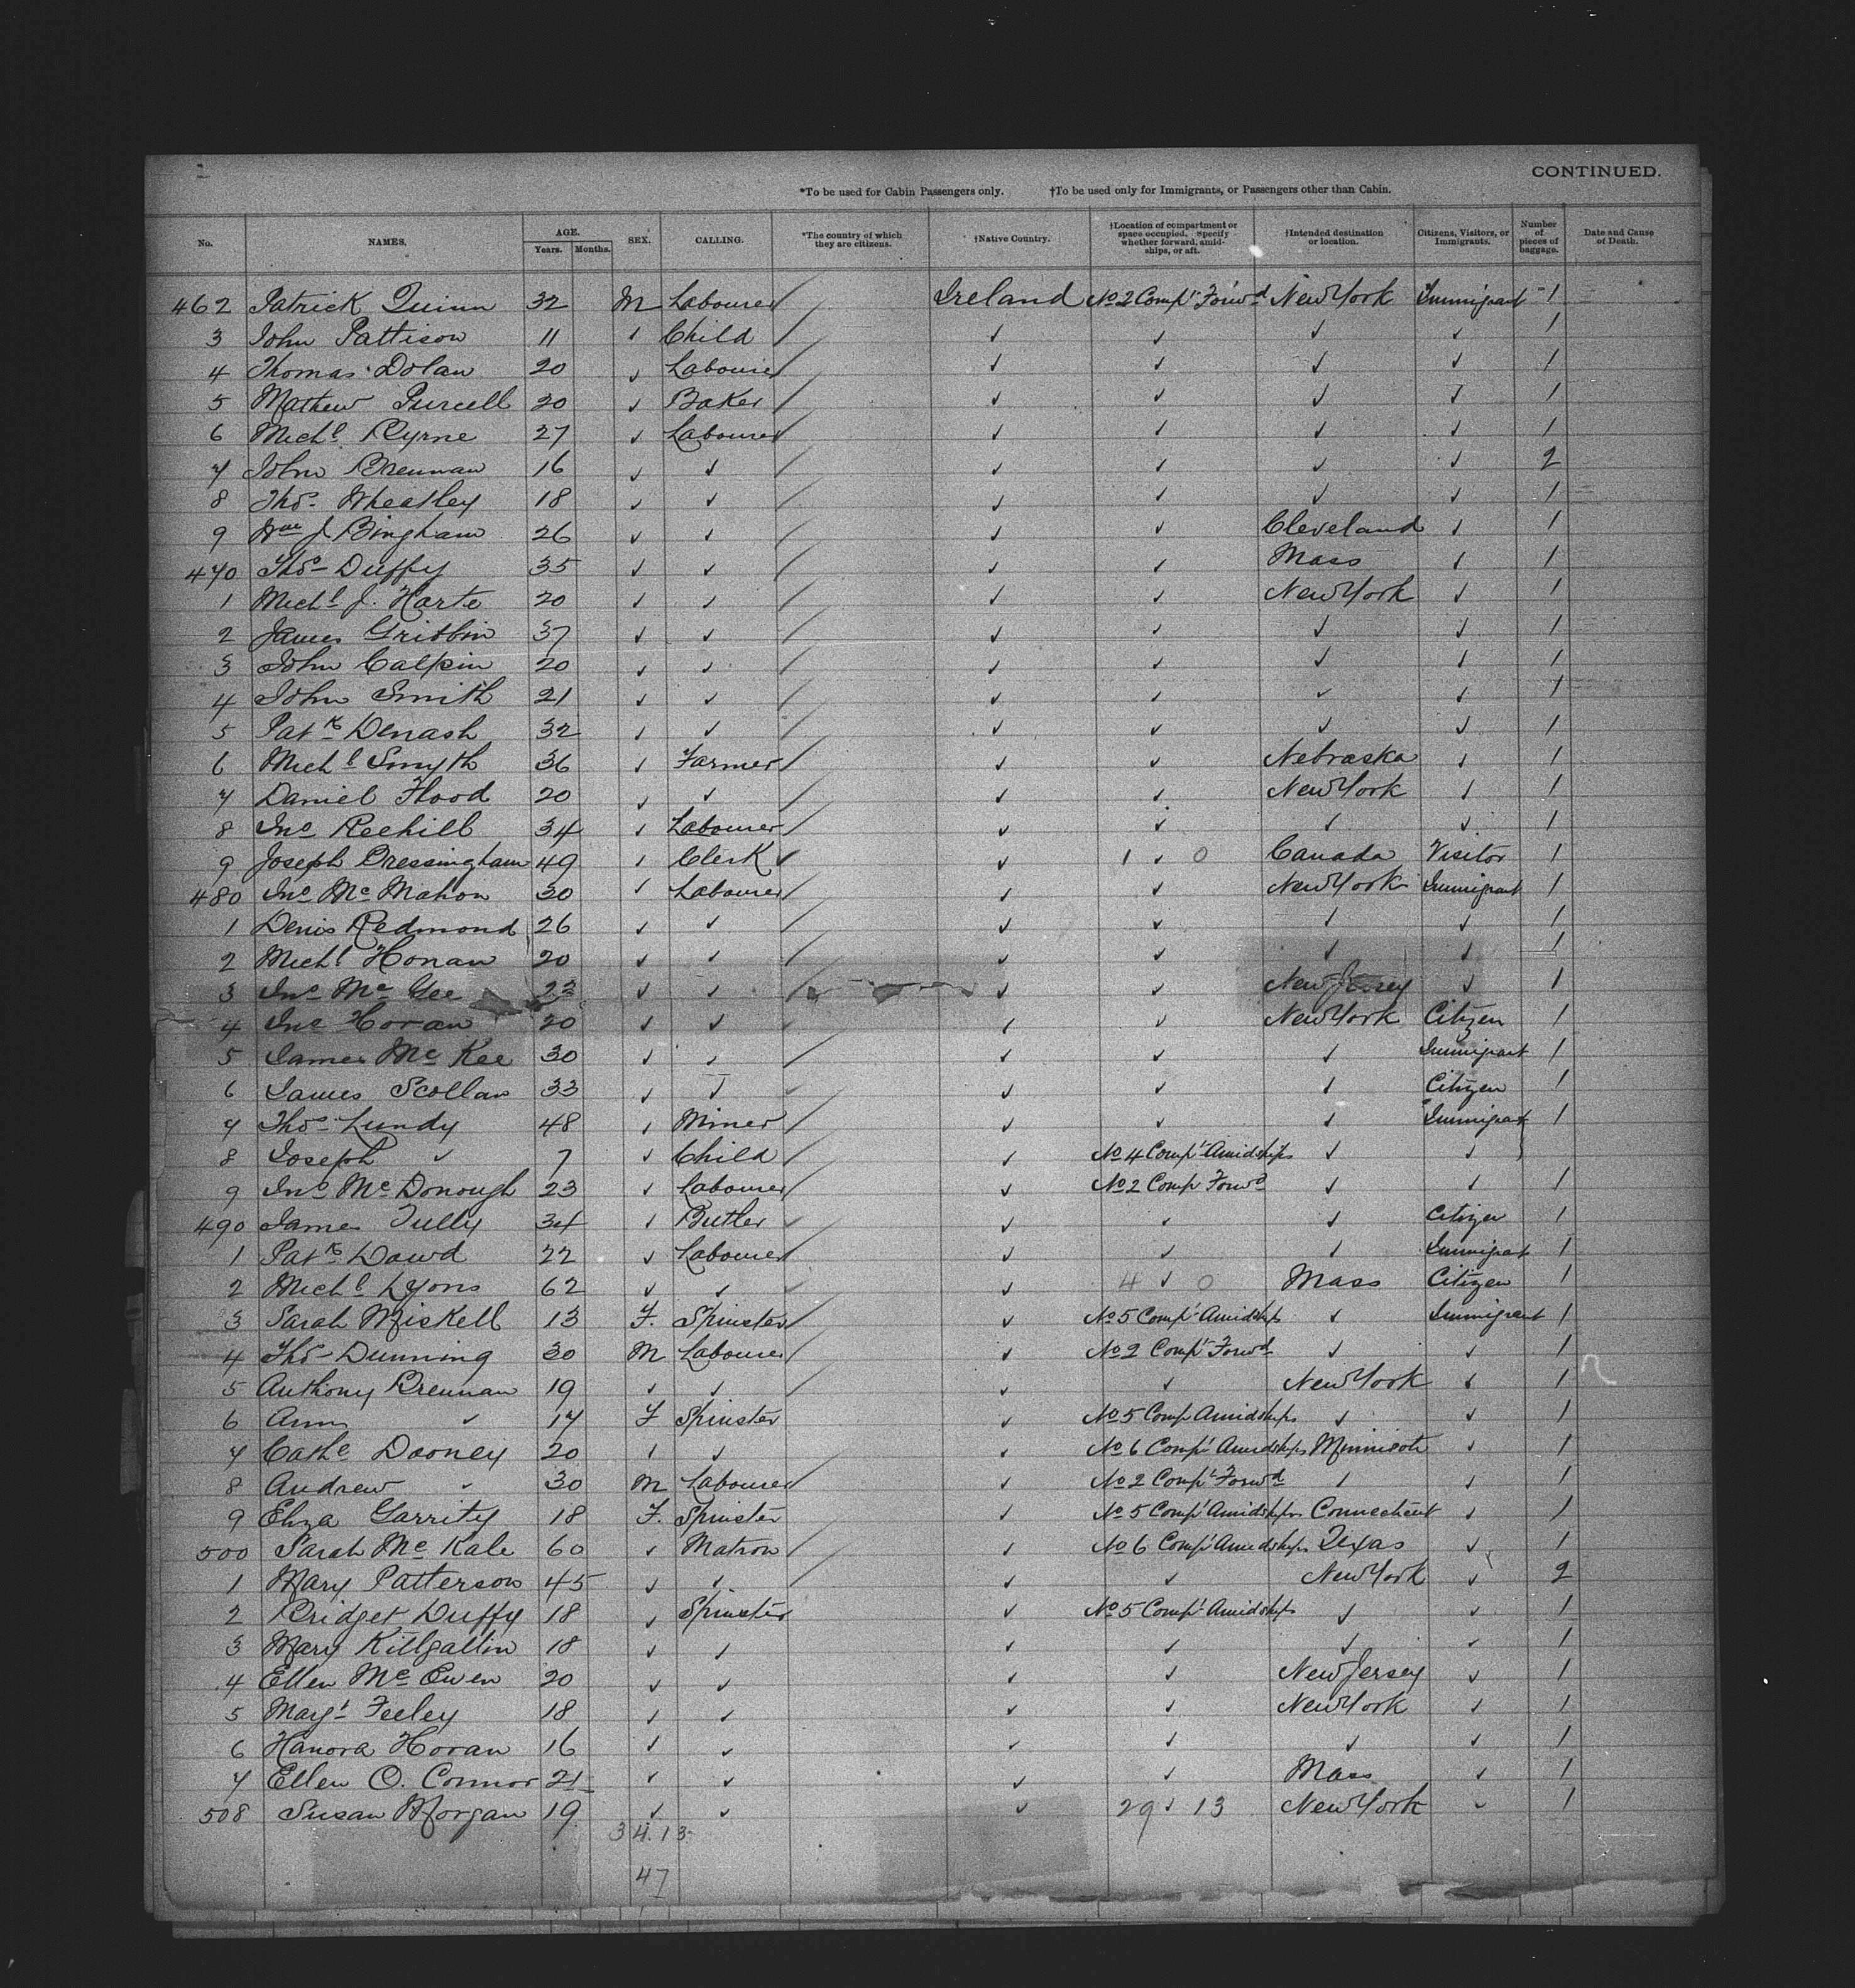 CONTINUED.
*To be used for Cabin Passengers only. †To be used only for Immigrants, or Passengers other than Cabin.
No. NAMES. AGE. Years. Months. SEX. CALLING. *The country of which they are citizens. †Native Country. †Location of compartment or space occupied. Specify whether forward, amidships, or aft. †Intended destination or location. Citizens, Visitors, or Immigrants. Number of pieces of baggage. Date and Cause of Death.
462 Patrick Quinn 32 M Labourer / Ireland No 2 Compt Forwd New York Immigrant 1
3 John Pattison 11 ✓ Child / ✓ ✓ ✓ ✓ 1
4 Thomas Dolan 20 ✓ Labourer / ✓ ✓ ✓ ✓ 1
5 Mathew Purcell 20 ✓ Baker / ✓ ✓ ✓ ✓ 1
6 Michl Byrne 27 ✓ Labourer / ✓ ✓ ✓ ✓ 1
7 John Brennan 16 ✓ ✓ / ✓ ✓ ✓ ✓ 2
8 Thos Wheatley 18 ✓ ✓ / ✓ ✓ ✓ ✓ 1
9 Wm J Bingham 26 ✓ ✓ / ✓ ✓ Cleveland ✓ 1
470 Thos Duffy 35 ✓ ✓ / ✓ ✓ Mass ✓ 1
1 Michl J. Harte 20 ✓ ✓ / ✓ ✓ New York ✓ 1
2 James Gribbin 37 ✓ ✓ / ✓ ✓ ✓ ✓ 1
3 John Calpin 20 ✓ ✓ / ✓ ✓ ✓ ✓ 1
4 John Smith 21 ✓ ✓ / ✓ ✓ ✓ ✓ 1
5 Patk Denash 32 ✓ ✓ / ✓ ✓ ✓ ✓ 1
6 Michl Smyth 36 ✓ Farmer / ✓ ✓ Nebraska ✓ 1
7 Daniel Flood 20 ✓ ✓ / ✓ ✓ New York ✓ 1
8 Jno Reehill 34 ✓ Labourer / ✓ ✓ ✓ ✓ 1
9 Joseph Bressingham 49 ✓ Clerk ✓ ✓ 1 ✓ 0 Canada Visitor 1
480 Jno Mc Mahon 30 ✓ Labourer / ✓ ✓ New York Immigrant 1
1 Denis Redmond 26 ✓ ✓ / ✓ ✓ ✓ ✓ 1
2 Michl Honan 20 ✓ ✓ / ✓ ✓ ✓ ✓ 1
3 Jno Mc Gee ✓ ✓ / ✓ ✓ New Jersey ✓ 1
4 Jno Horan 20 ✓ ✓ ✓ ✓ ✓ New York Citizen 1
5 James Mc Kee 30 ✓ ✓ / ✓ ✓ ✓ Immigrant 1
6 James Scollan 33 ✓ ✓ ✓ ✓ ✓ ✓ Citizen 1
7 Thos Lundy 48 ✓ Miner / ✓ ✓ ✓ Immigrant 1
8 Joseph ✓ 7 ✓ Child / ✓ No 4 Compt Amidships ✓ ✓
9 Jno Mc Donough 23 ✓ Labourer / ✓ No 2 Comp Forwd ✓ ✓ 1
490 James Tully 34 ✓ Butler ✓ ✓ ✓ ✓ Citizen 1
1 Patk Dowd 22 ✓ Labourer / ✓ ✓ ✓ Immigrant 1
2 Michl Lyons 62 ✓ ✓ ✓ ✓ 4 ✓ 0 Mass Citizen 1
3 Sarah Miskell 13 F. Spinster / ✓ No 5 Compt Amidships ✓ Immigrant 1
4 Thos Dunning 30 M Labourer / ✓ No 2 Compt Forwd ✓ ✓ 1
5 Anthony Brennan 19 ✓ ✓ / ✓ ✓ New York ✓ 1
6 Ann ✓ 17 F Spinster ✓ No 5 Comp Amidships ✓ ✓ 1
7 Cathe Dooney 20 ✓ ✓ ✓ No 6 Compt Amidships Minnisota ✓ 1
8 Andrew ✓ 30 M Labourer / ✓ No 2 Compt Forwd ✓ ✓ 1
9 Eliza Garrity 18 F. Spinster ✓ No 5 Compt Amidships Connecticut ✓ 1
500 Sarah Mc Kale 60 ✓ Matron / ✓ No 6 Compt Amidships Texas ✓ 1
1 Mary Patterson 45 ✓ ✓ / ✓ ✓ New York ✓ 2
2 Bridget Duffy 18 ✓ Spinster ✓ No 5 Compt Amidships ✓ ✓ 1
3 Mary Killgallin 18 ✓ ✓ ✓ ✓ ✓ ✓ 1
4 Ellen Mc Ewen 20 ✓ ✓ ✓ ✓ New Jersey ✓ 1
5 Margt Feeley 18 ✓ ✓ ✓ ✓ New York ✓ 1
6 Hanora Horan 16 ✓ ✓ ✓ ✓ ✓ ✓ 1
7 Ellen O. Connor 21 ✓ ✓ ✓ ✓ Mass ✓ 1
508 Susan Morgan 19 ✓ ✓ ✓ 29 ✓ 13 New York ✓ 1
34. 13
47